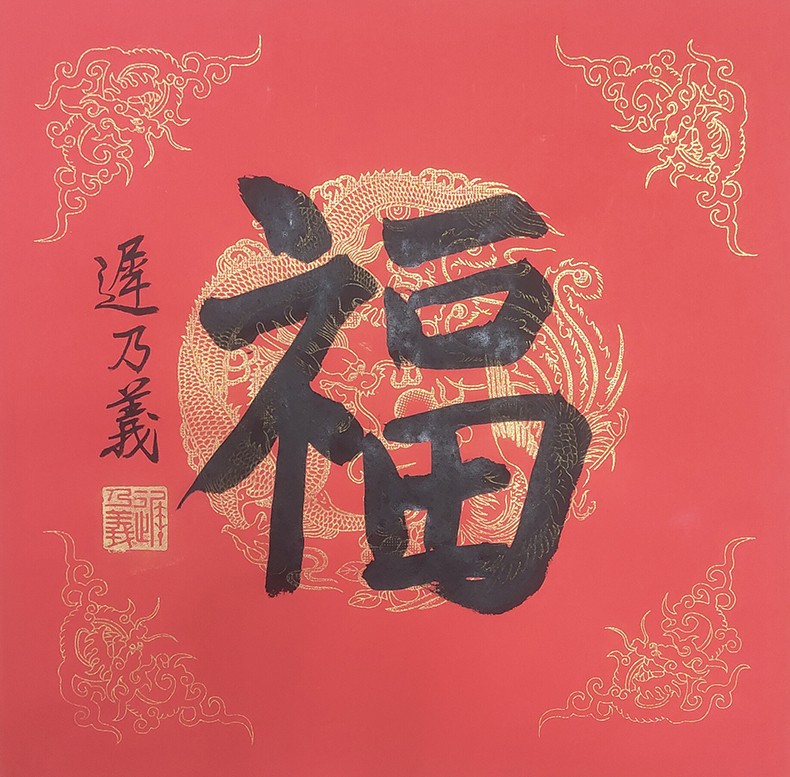 福
遲乃義
遲乃義